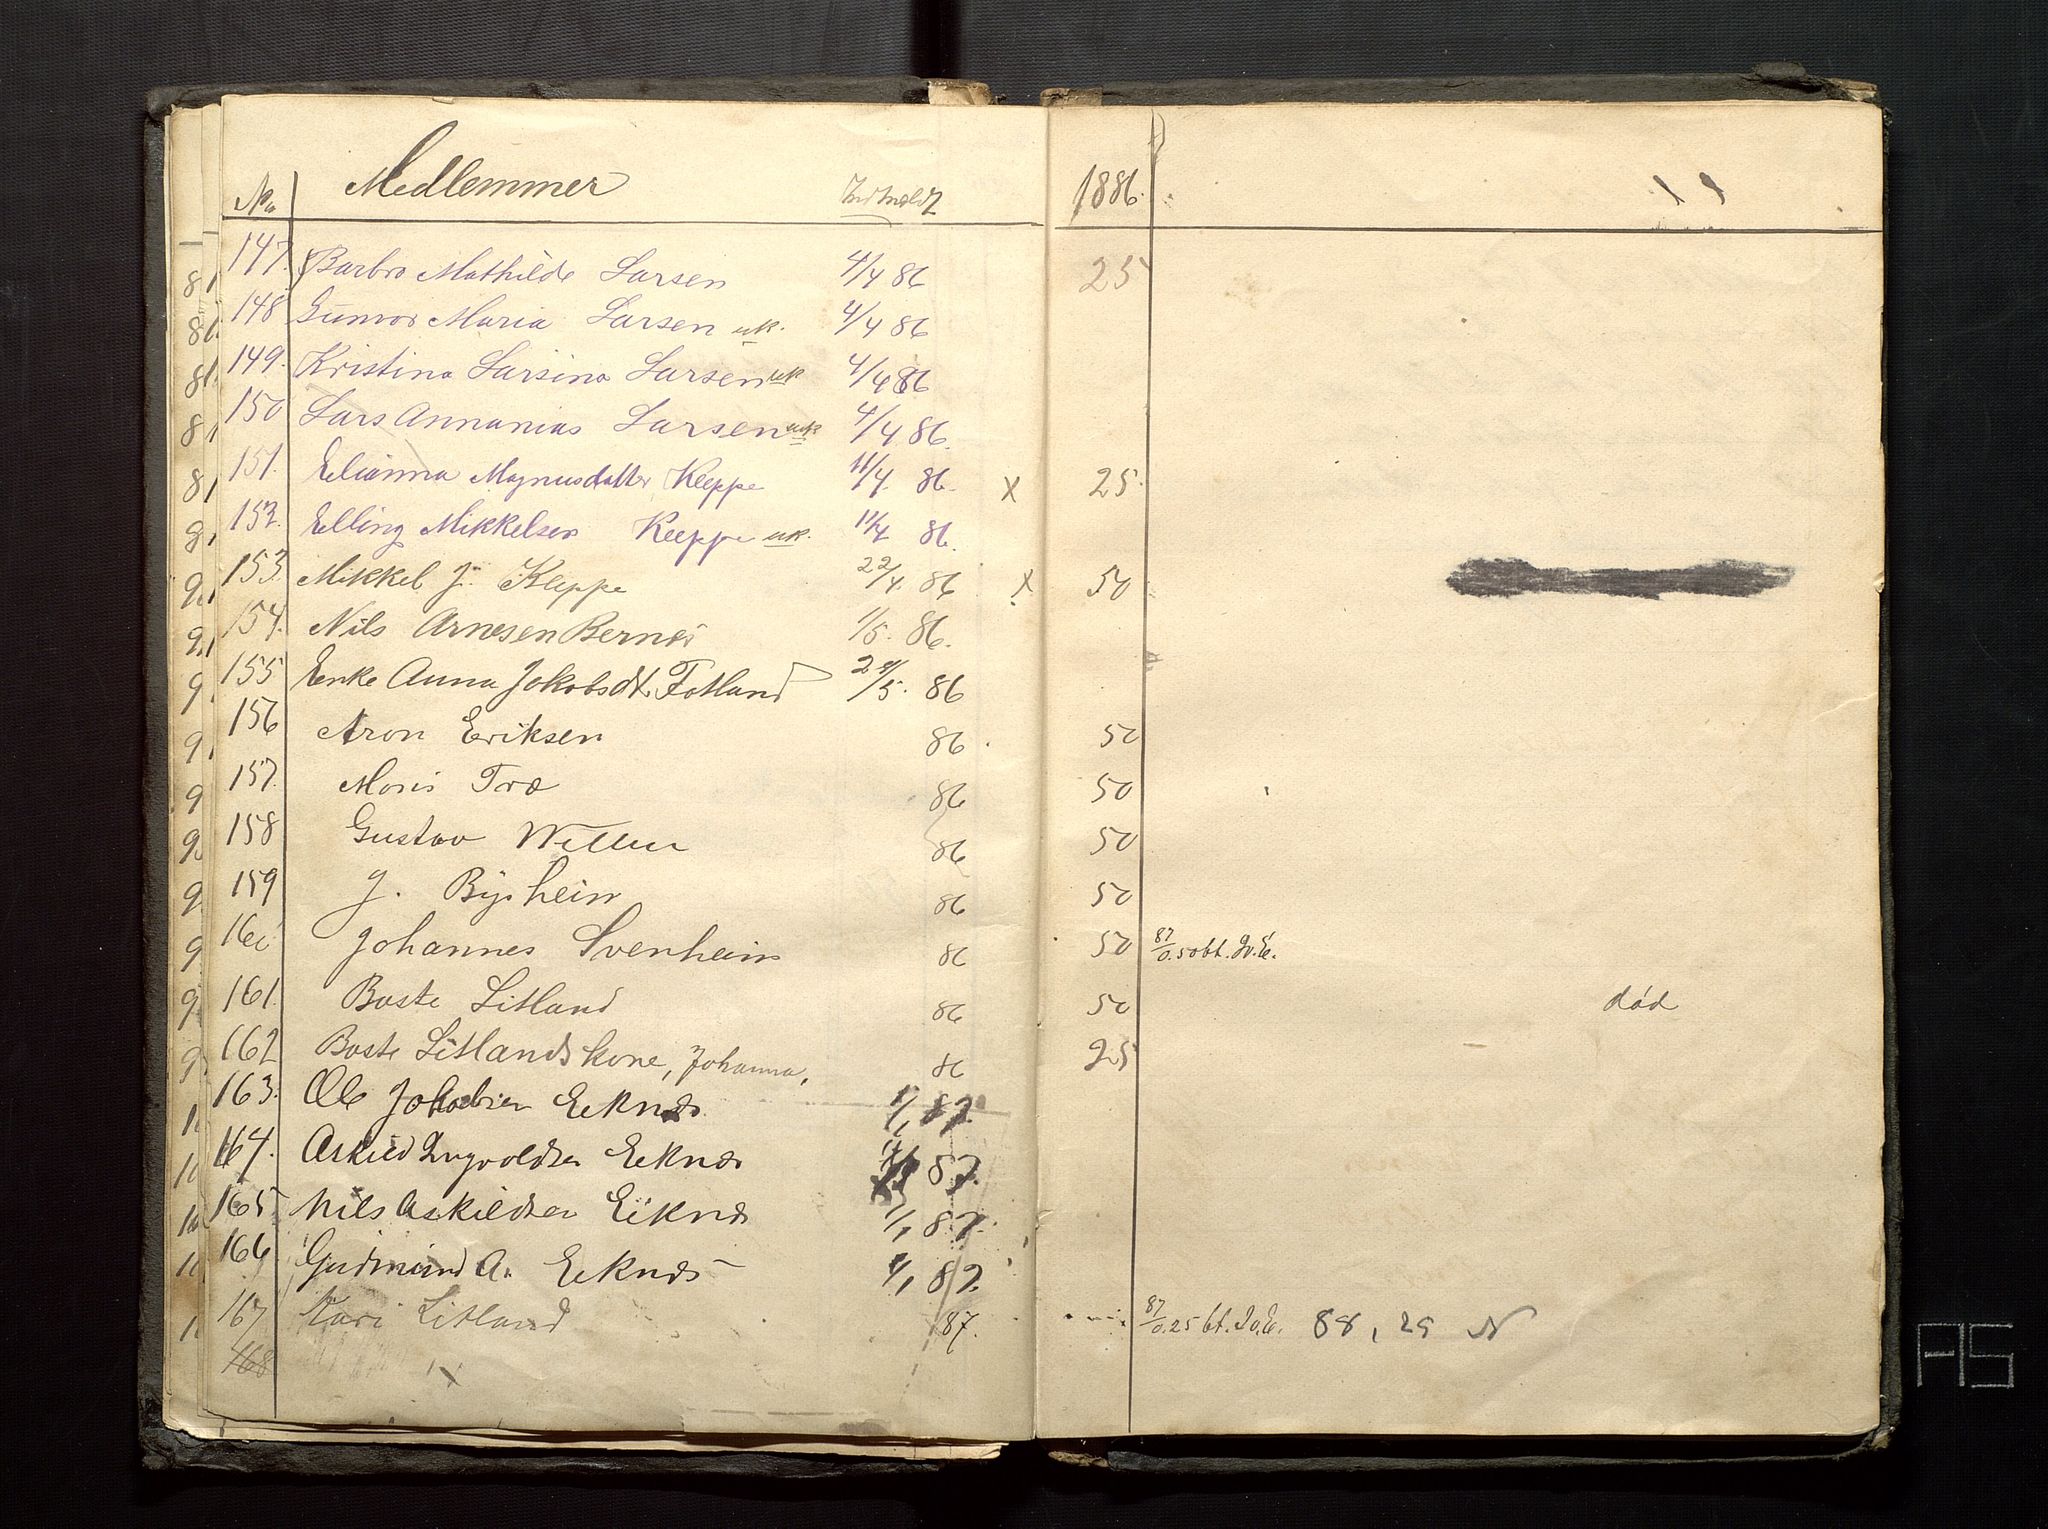 No Medlemmer Indmeldt 1886.
147. Barbro Mathilde Larsen 4/4 86 25
148 Gunvor Maria Larsen uk. 4/4 86
149. Kristina Larsina Larsen uk 4/4 86
150 Lars Annanias Larsen uk 4/4 86.
151. Elianna Magnusdatter Kleppe 11/4. 86. x 25.
152. Elling Mikkelsen Kleppe uk. 11/4 86.
153. Mikkel J. Kleppe 22/4. 86 x 50
154. Nils Arnesen Bernæs 1/5. 86.
155 Enke Anna Jakobsdt. Fotland /5. 86
156 Aron Eriksen 86 50
157. Moris Træ 86 50
158 Gustav 86 50
159 J. Bysheim 86 50
160 Johannes Svenheim 86 50 87/0.50 bt.
161. Baste Litland 86 50 död
162 Baste Litlands kone, Johanna, 86 25
163. Ole Eeknæs 1/1 87.
164. Askild Ingvoldsen Eeknæs 87.
165. Nils Askildsen Eiknæs 1/1 87.
166 Gudmund A. Eeknæs 1/1 87.
167 Kari Litland 87. 87/0.25 bt. 88, 25 N
168
AS